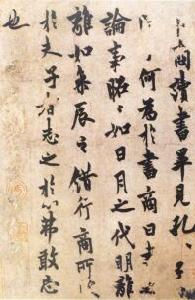 商讀書畢見孔子
何為於書商曰書之
論事昭昭如日月之代明離
離如參辰之錯行商所
於夫子者志之於心弗敢忘
也